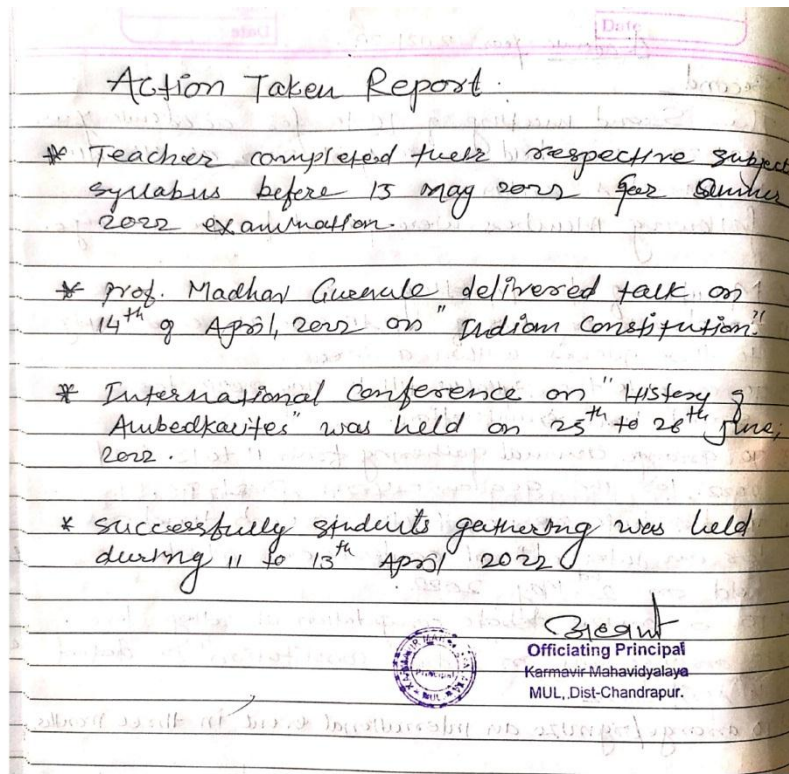 Date
Action Taken Report.
* Teacher completed their respective subject
syllabus before 15 May 2022 for Summer
2022 examination.
* Prof. Madhav delivered talk on
14th of April, 2022 on "Indian Constitution."
* International Conference on "History of
Ambedkarites" was held on 25th to 26th June,
2022.
* successfully students gathering was held
during 11 to 13th April 2022
Officiating Principal
Karmavir Mahavidyalaya
MUL,,Dist-Chandrapur.